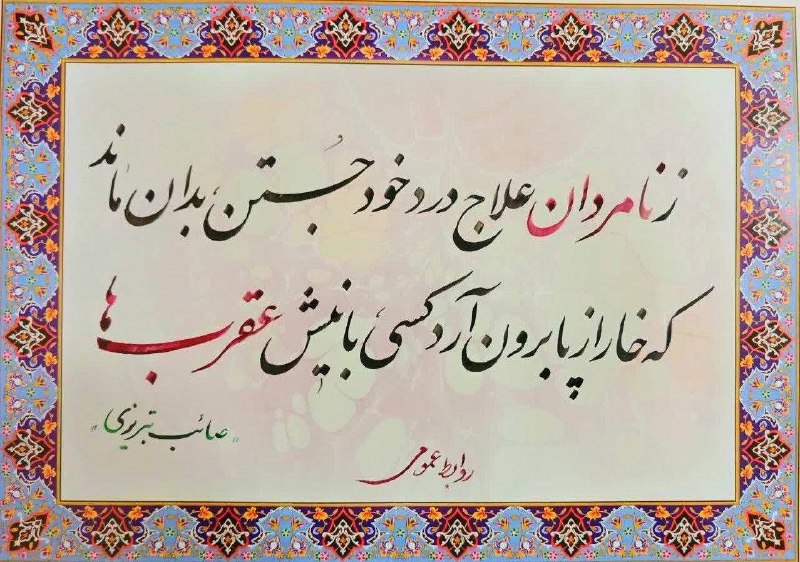 ز نامردان علاج درد خود جستن، بدان ماند
که خار از پا برون آرد کسی، با نیش عقرب ها
"صائب تبریزی"
روابط عمومی